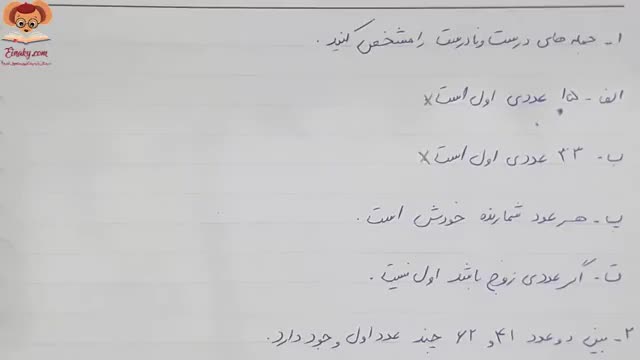 Einaky.com
۱- جمله های درست و نادرست را مشخص کنید.
الف- ۱۵ عددی اول است×
ب- ۳۳ عددی اول است×
پ- هر عدد شمارنده خودش است.
ت- اگر عددی زوج باشد اول نیست.
۲- بین دو عدد ۴۱ و ۶۲ چند عدد اول وجود دارد.